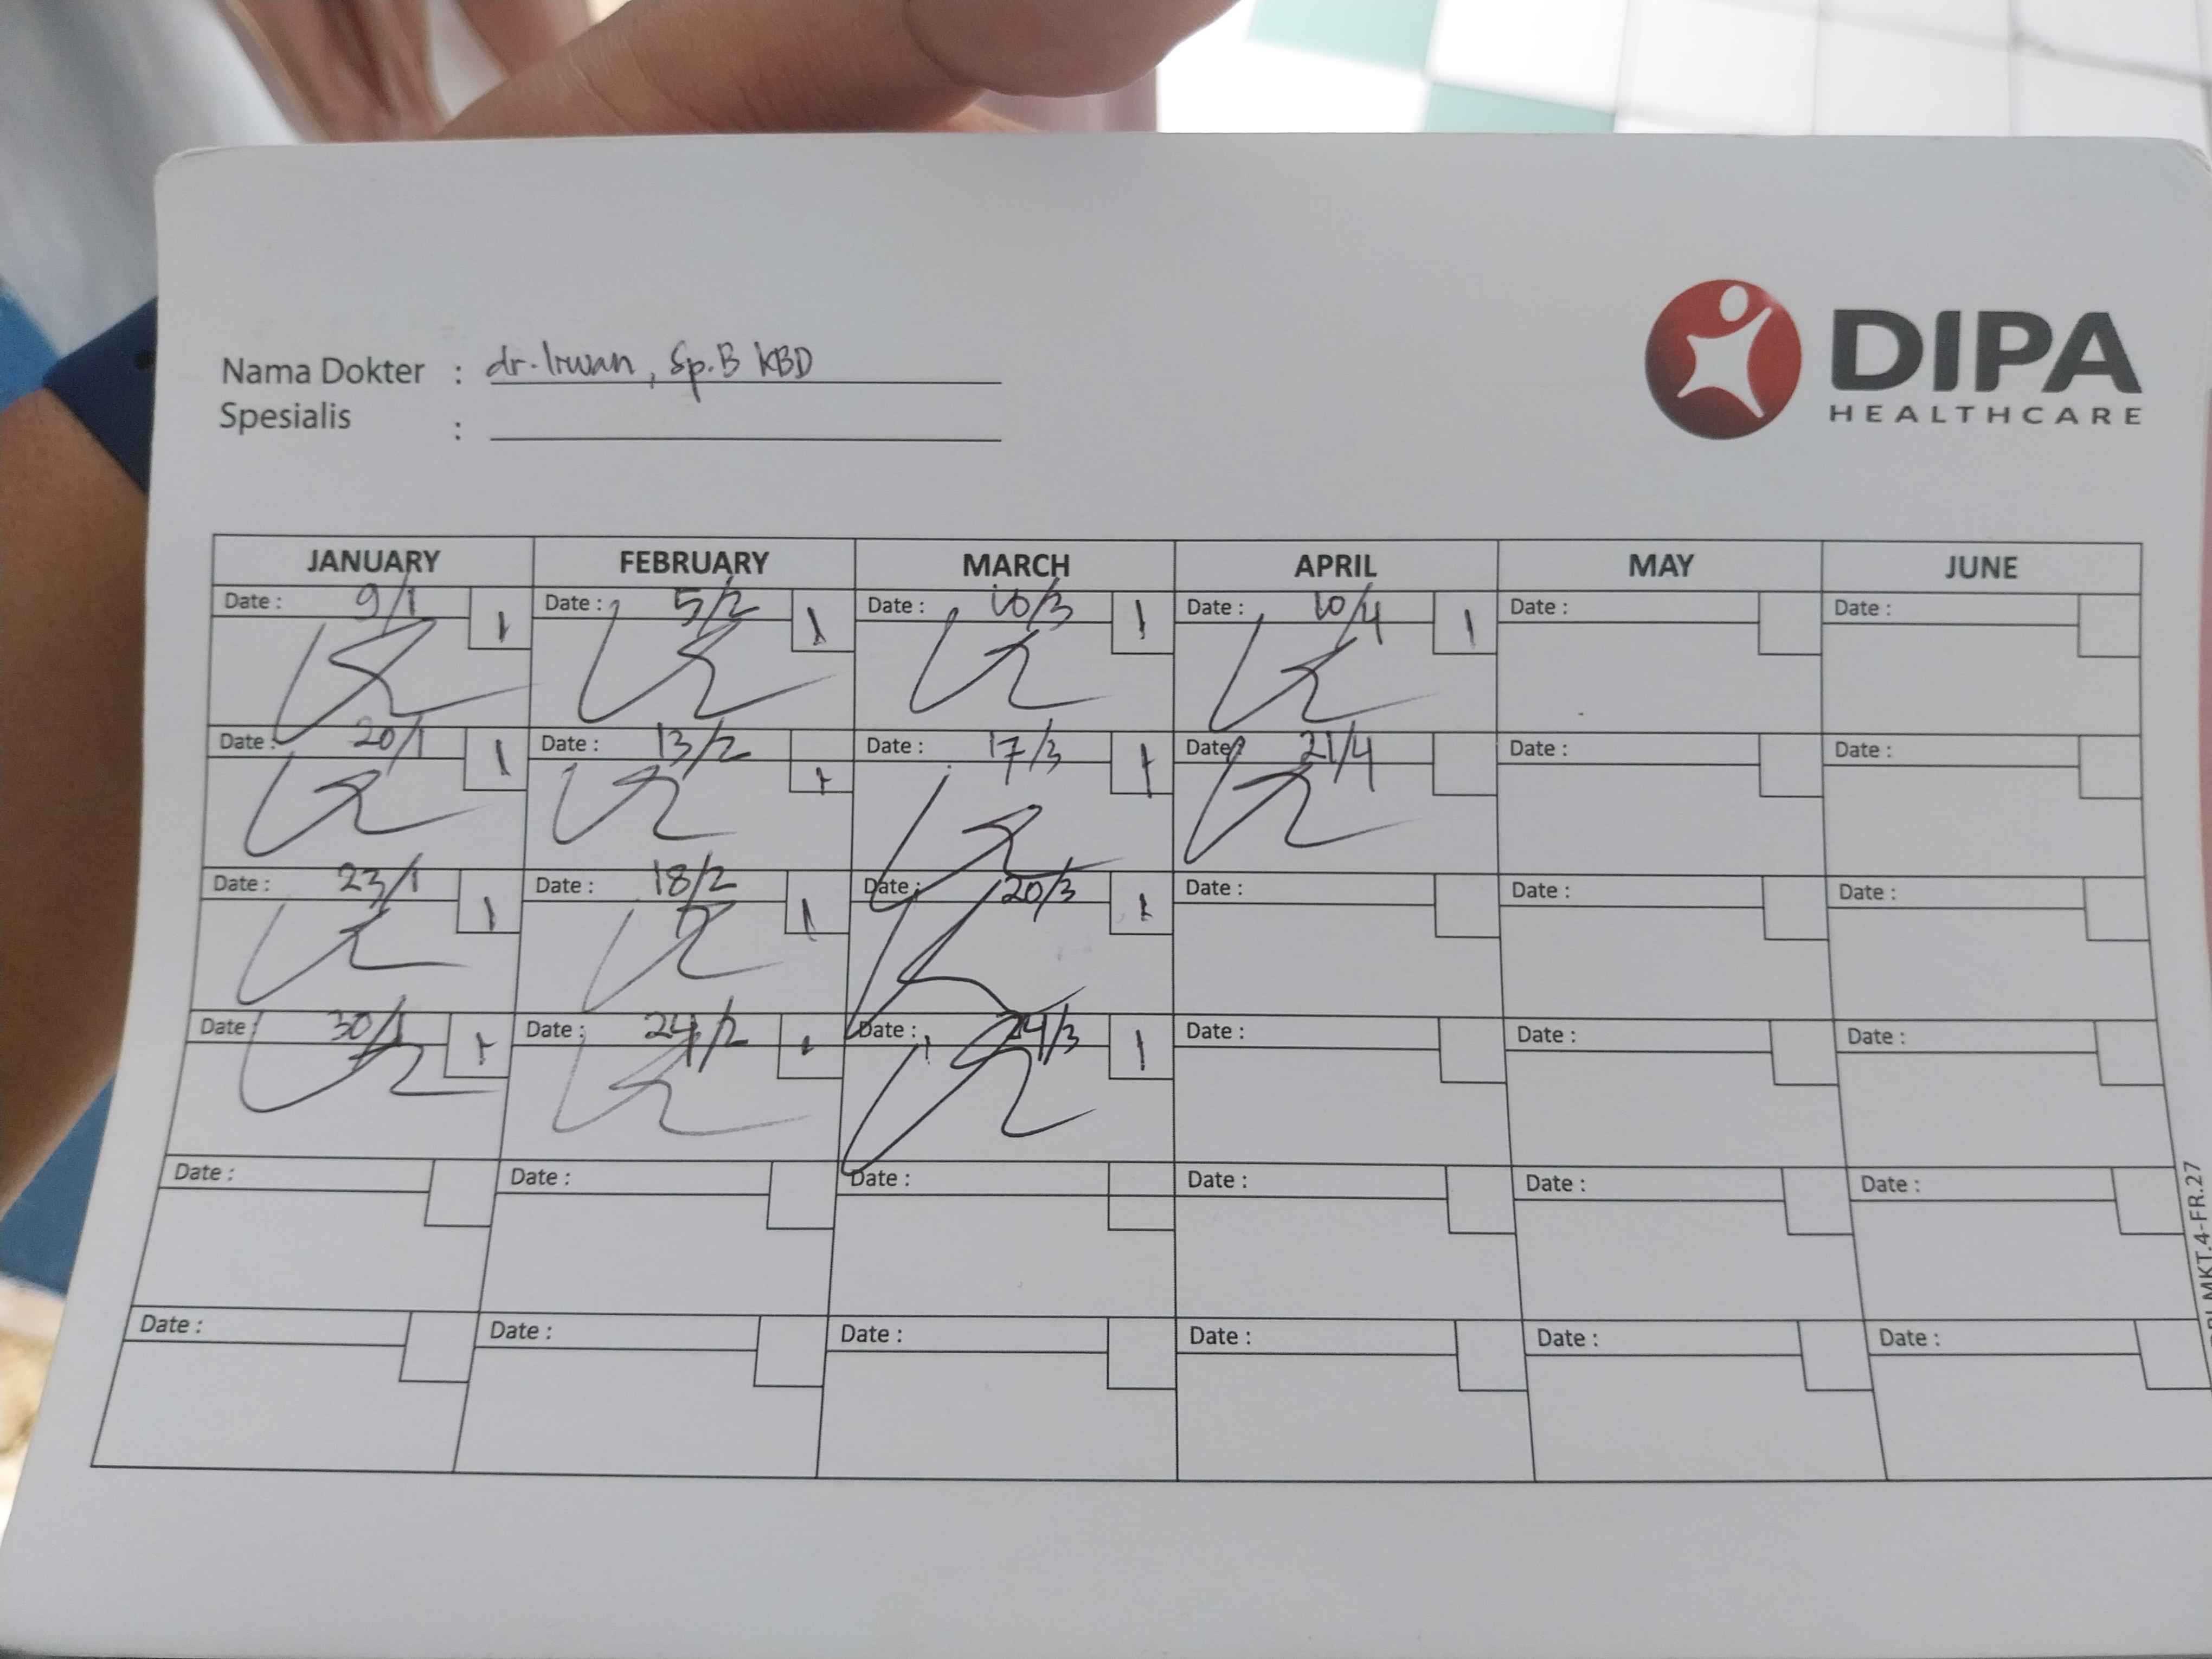 DIPA
HEALTHCARE
Nama Dokter : dr. Irwan, Sp.B KBD
Spesialis :
JANUARY FEBRUARY MARCH APRIL MAY JUNE
Date : 9/1 1 Date : 5/2 1 Date : 10/3 1 Date : 10/4 1 Date : Date :
Date : 20/1 1 Date : 13/2 1 Date : 17/3 1 Date : 21/4 Date : Date :
Date : 23/1 1 Date : 18/2 1 Date : 20/3 1 Date : Date : Date :
Date : 30/1 1 Date : 24/2 1 Date : 24/3 1 Date : Date : Date :
Date : Date : Date : Date : Date : Date :
Date : Date : Date : Date : Date : Date :
MKT.4-FR.27